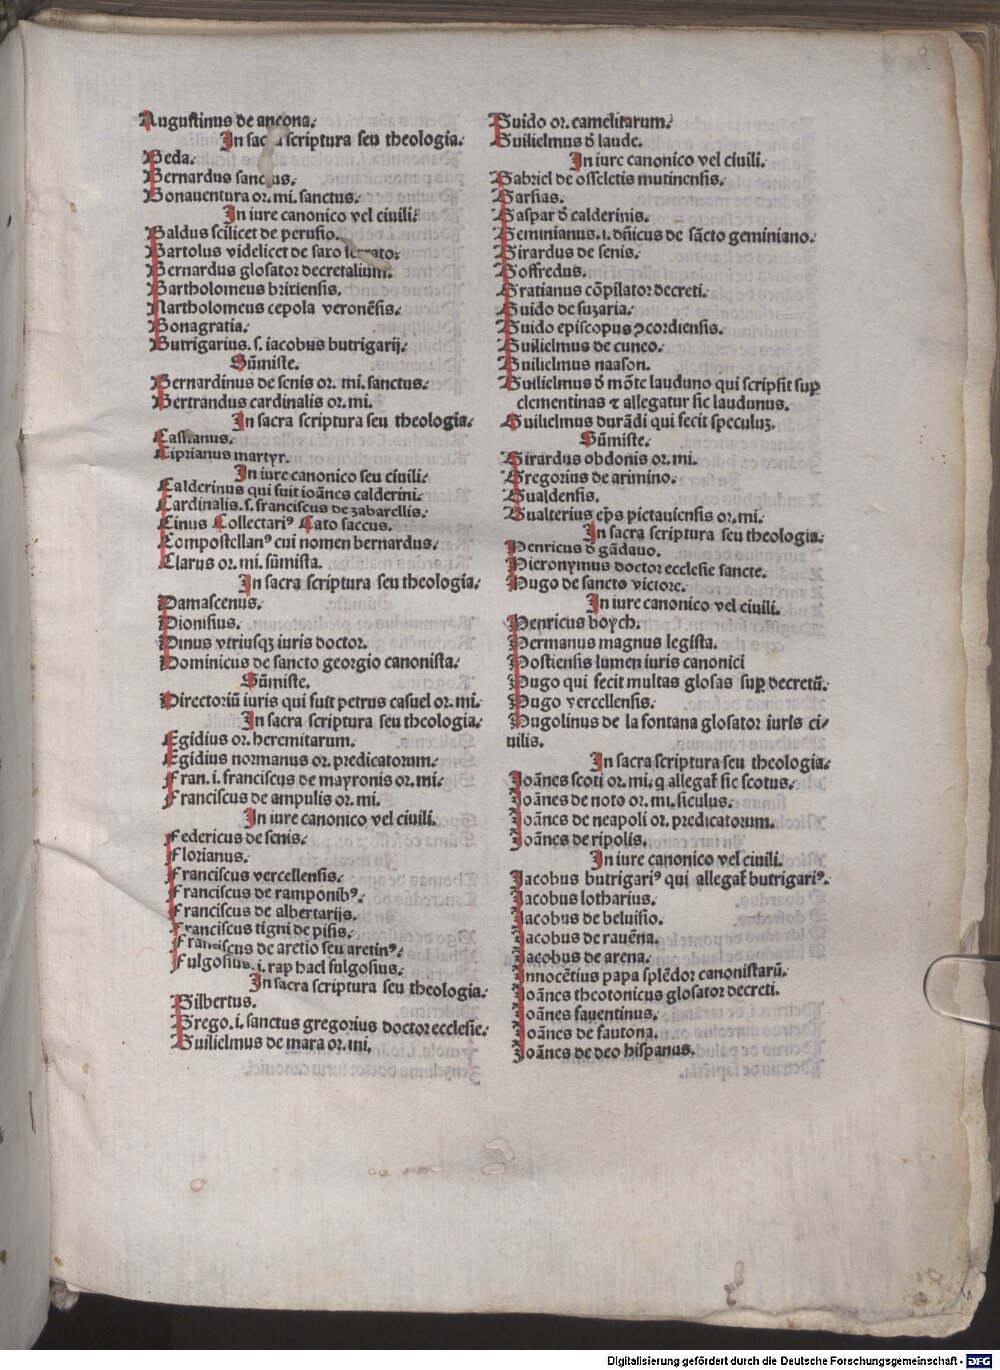 Augustinus de ancona.
In sacra scriptura seu theologia.
Beda.
Bernardus sanctus.
Bonauentura or. mi. sanctus.
In iure canonico vel ciuili.
Baldus scilicet de perusio.
Bartolus videlicet de saxo ferrato.
Bernardus glosator decretalium.
Bartholomeus brixiensis.
Bartholomeus cepola veronẽsis.
Bonagratia.
Butrigarius. s. iacobus butrigarij.
Sũmiste.
Bernardinus de senis or. mi. sanctus.
Bertrandus cardinalis or. mi.
In sacra scriptura seu theologia.
Cassianus.
Ciprianus martyr.
In iure canonico seu ciuili.
Calderinus qui fuit ioãnes calderini.
Cardinalis. s. franciscus de zabarellis.
Cinus Collectariꝰ Cato saccus.
Compostellanꝰ cui nomen bernardus.
Clarus or. mi. sũmista.
In sacra scriptura seu theologia.
Damascenus.
Dionisius.
Dinus vtriusqꝫ iuris doctor.
Dominicus de sancto georgio canonista.
Sũmiste.
Directoriũ iuris qui fuit petrus casuel or. mi.
In sacra scriptura seu theologia.
Egidius or. heremitarum.
Egidius normanus or. predicatorum.
Fran. i. franciscus de mayronis or. mi.
Franciscus de ampulis or. mi.
In iure canonico vel ciuili.
Federicus de senis.
Florianus.
Franciscus vercellensis.
Franciscus de ramponibꝰ.
Franciscus de albertarijs.
Franciscus tigni de pisis.
Franciscus de aretio seu aretinꝰ.
Fulgosius. i. raphael fulgosius.
In sacra scriptura seu theologia.
Gilbertus.
Grego. i. sanctus gregorius doctor ecclesie.
Guilielmus de mara or. mi.
Guido or. camelitarum.
Guilielmus đ laude.
In iure canonico vel ciuili.
Gabriel de osseletis mutinensis.
Garsias.
Gaspar đ calderinis.
Geminianus. i. dñicus de sãcto geminiano.
Girardus de senis.
Goffredus.
Gratianus cõpilator decreti.
Guido de suzaria.
Guido episcopus ꝯcordiensis.
Guilielmus de cuneo.
Guilielmus naason.
Guilielmus đ mõte lauduno qui scripsit suꝑ
clementinas ⁊ allegatur sic laudunus.
Guilielmus durãdi qui fecit speculuꝫ.
Sũmiste.
Girardus obdonis or. mi.
Gregorius de arimino.
Gualdensis.
Gualterius ep̃s pictauiensis or. mi.
In sacra scriptura seu theologia.
Henricus đ gãdauo.
Hieronymus doctor ecclesie sancte.
Hugo de sancto victore.
In iure canonico vel ciuili.
Henricus boych.
Hermanus magnus legista.
Hostiensis lumen iuris canonici
Hugo qui fecit multas glosas suꝑ decretũ.
Hugo vercellensis.
Hugolinus de la fontana glosator iuris ci-
uilis.
In sacra scriptura seu theologia.
Joãnes scoti or. mi. q allegat̃ sic scotus.
Joãnes de noto or. mi. siculus.
Joãnes de neapoli or. predicatorum.
Joãnes de ripolis.
In iure canonico vel ciuili.
Jacobus butrigariꝰ qui allegat̃ butrigariꝰ.
Jacobus lotharius.
Jacobus de beluisio.
Jacobus de rauẽna.
Jacobus de arena.
Innocẽtius papa splẽdor canonistarũ.
Joãnes theotonicus glosator decreti.
Joãnes fauentinus.
Joãnes de fautona.
Joãnes de deo hispanus.
Digitalisierung gefördert durch die Deutsche Forschungsgemeinschaft - DFG